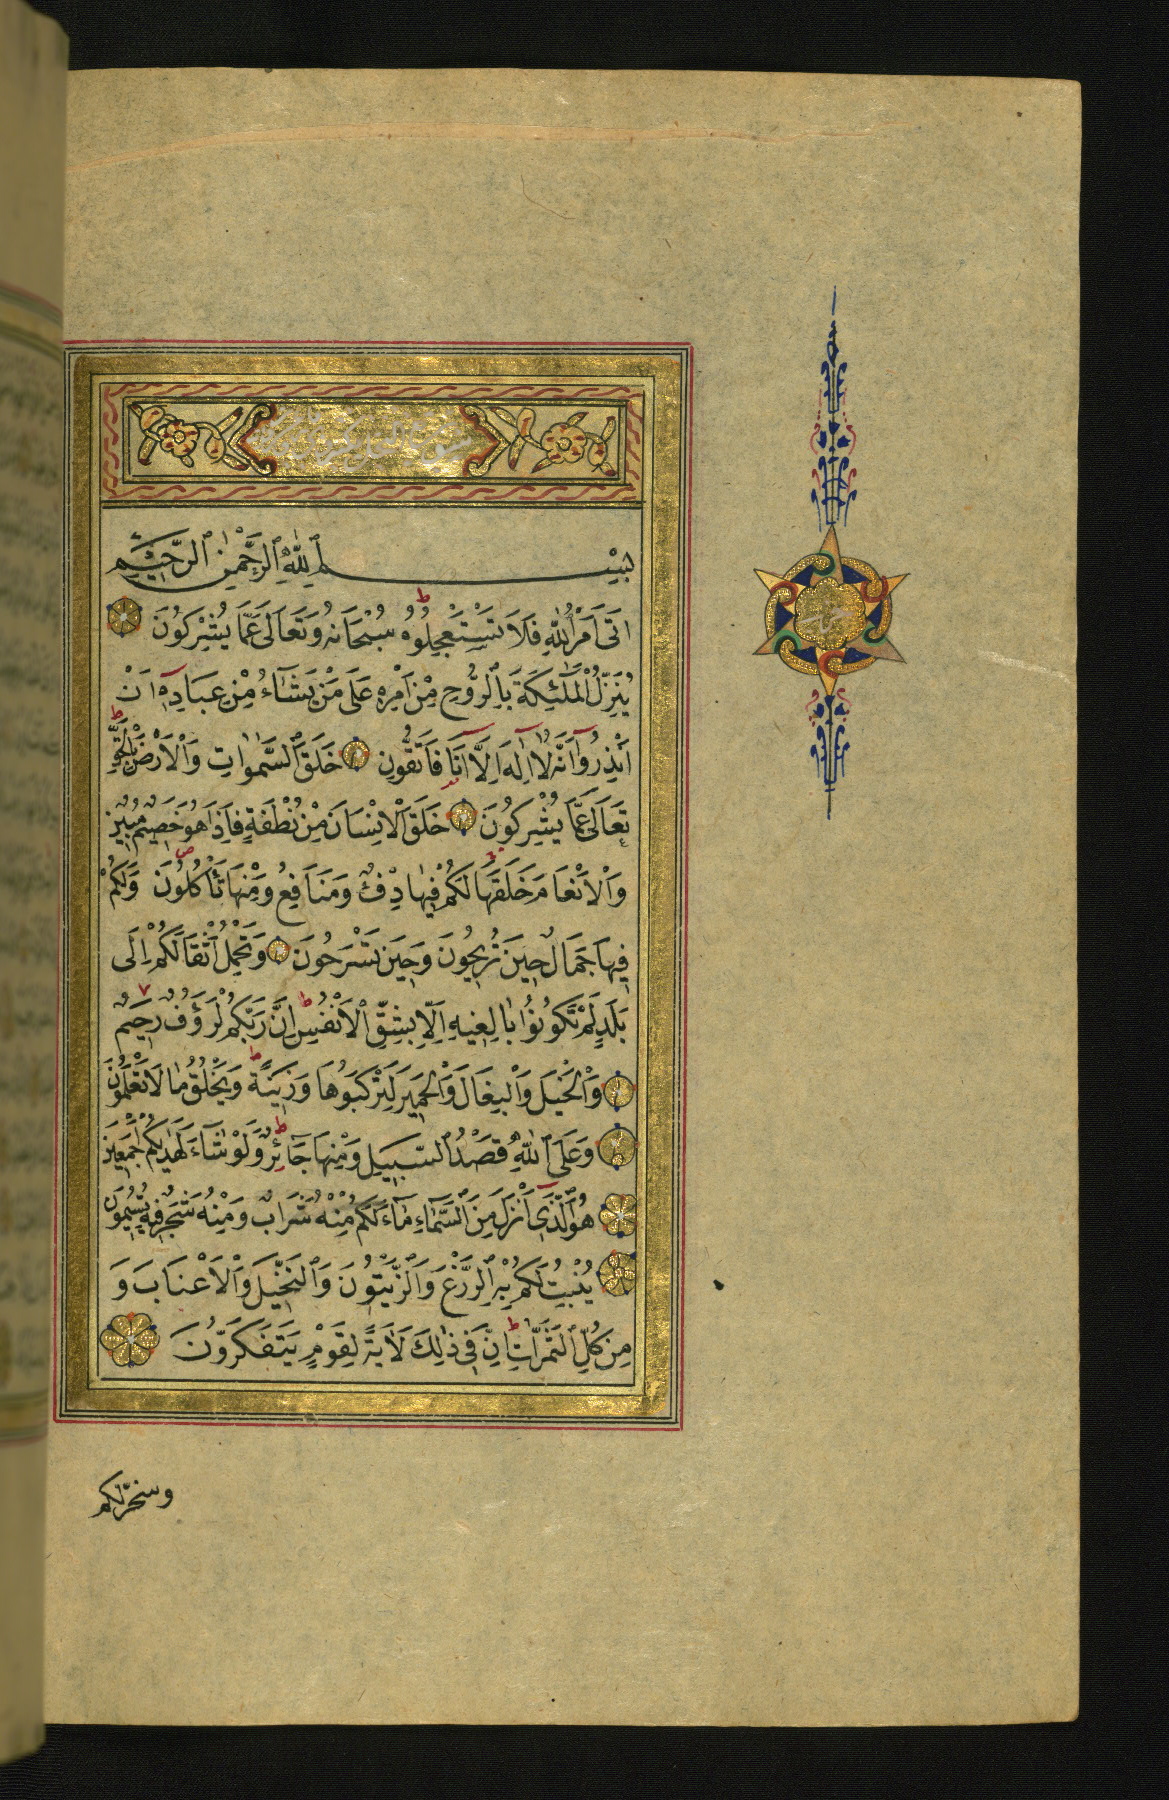 بِسْمِ ٱللّٰهِ ٱلرَّحْمٰنِ ٱلرَّحِيْمِ
اَتٰى اَمْرُ اللّٰهِ فَلَا تَسْتَعْجِلُوْهُ سُبْحَانَهُ وَتَعَالٰى عَمَّا يُشْرِكُوْنَ
يُنَزِّلُ الْمَلٰٓئِكَةَ بِالرُّوْحِ مِنْ اَمْرِهٖ عَلٰى مَنْ يَشَآءُ مِنْ عِبَادِهٖٓ اَنْ
اَنْذِرُوْٓا اَنَّهُ لَٓا اِلٰهَ اِلَّٓا اَنَا فَاتَّقُوْنِ خَلَقَ السَّمٰوَاتِ وَالْاَرْضَ بِالْحَقِّ
تَعَالٰى عَمَّا يُشْرِكُوْنَ خَلَقَ الْاِنْسَانَ مِنْ نُطْفَةٍ فَاِذَا هُوَ خَصِيْمٌ مُبِيْنٌ
وَالْاَنْعَامَ خَلَقَهَا لَكُمْ فِيْهَا دِفْءٌ وَمَنَافِعُ وَمِنْهَا تَأْكُلُوْنَ وَلَكُمْ
فِيْهَا جَمَالٌ حِيْنَ تُرِيْحُوْنَ وَحِيْنَ تَسْرَحُوْنَ وَتَحْمِلُ اَثْقَالَكُمْ اِلٰى
بَلَدٍ لَمْ تَكُوْنُوْا بَالِغِيْهِ اِلَّا بِشِقِّ الْاَنْفُسِ اِنَّ رَبَّكُمْ لَرَؤُفٌ رَحِيْمٌ
وَالْخَيْلَ وَالْبِغَالَ وَالْحَمِيْرَ لِتَرْكَبُوْهَا وَزِيْنَةً وَيَخْلُقُ مَا لَا تَعْلَمُوْنَ
وَعَلَى اللّٰهِ قَصْدُ السَّبِيْلِ وَمِنْهَا جَآئِرٌ وَلَوْ شَآءَ لَهَدٰىكُمْ اَجْمَعِيْنَ
هُوَ الَّذِيْٓ اَنْزَلَ مِنَ السَّمَآءِ مَآءً لَكُمْ مِنْهُ شَرَابٌ وَمِنْهُ شَجَرٌ فِيْهِ تُسِيْمُوْنَ
يُنْبِتُ لَكُمْ بِهِ الزَّرْعَ وَالزَّيْتُوْنَ وَالنَّخِيْلَ وَالْاَعْنَابَ وَ
مِنْ كُلِّ الثَّمَرَاتِ اِنَّ فِيْ ذٰلِكَ لَاٰيَةً لِقَوْمٍ يَتَفَكَّرُوْنَ
وسخر لكم